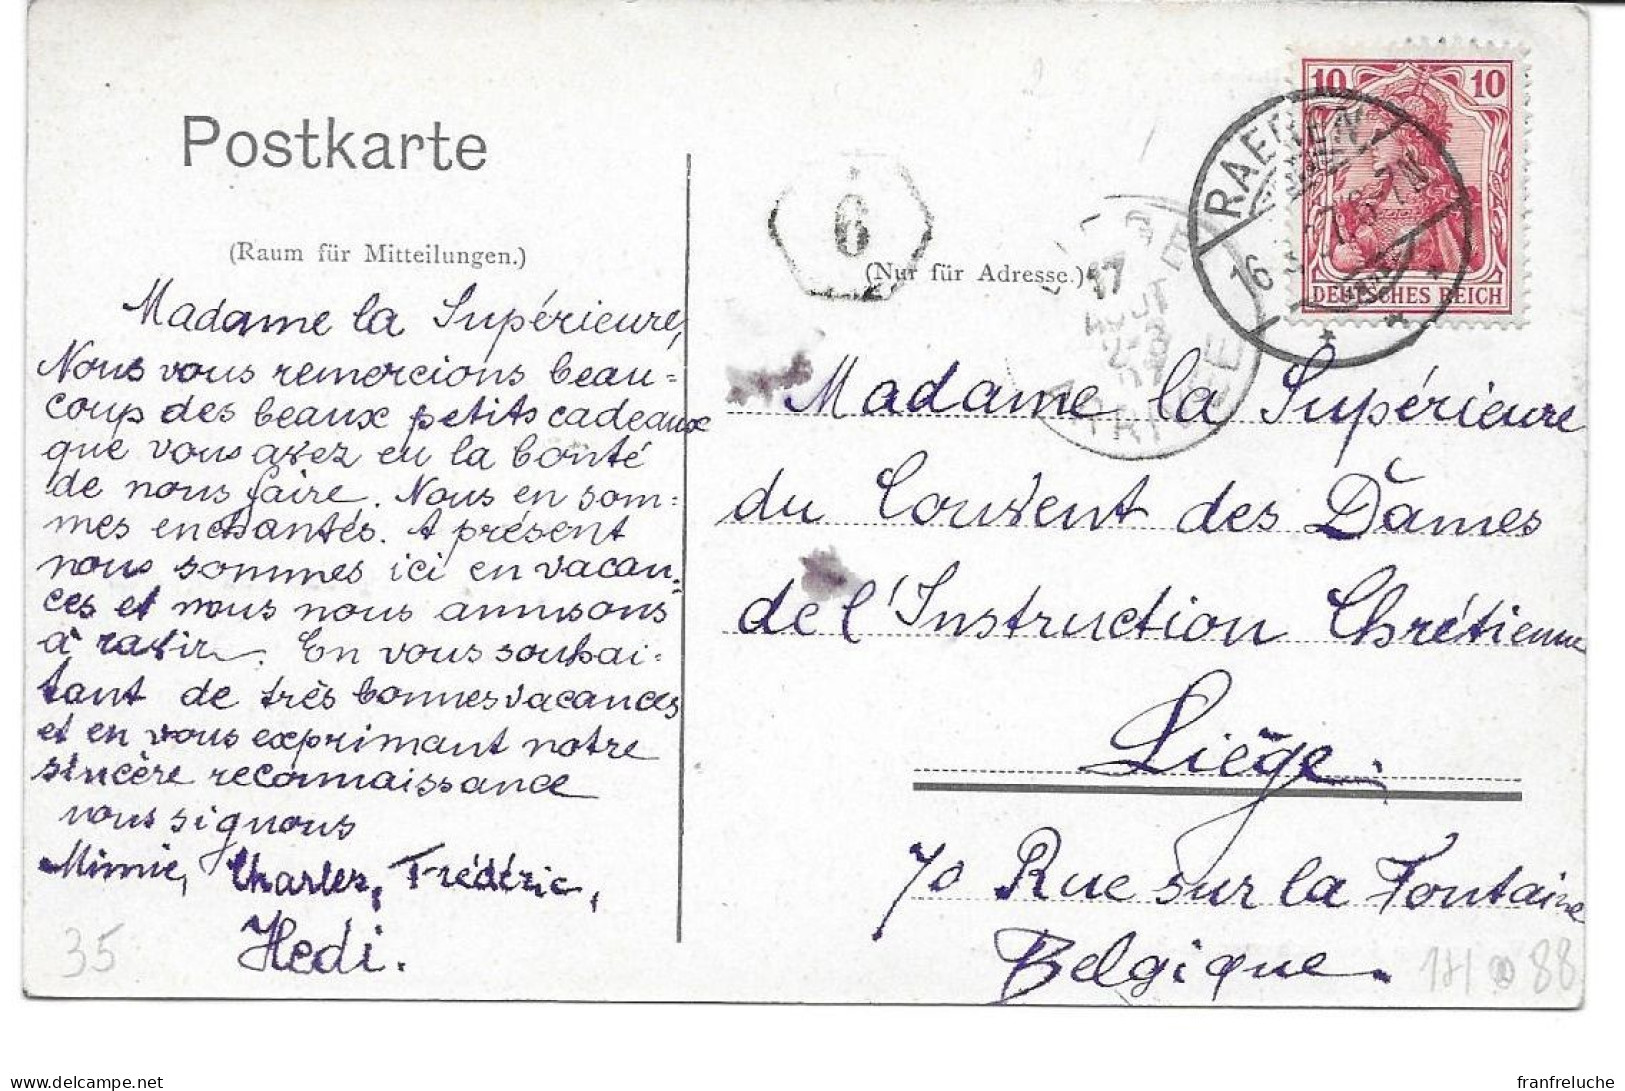 Postkarte
(Raum für Mitteilungen.)
Madame la Supérieure,
Nous vous remercions beau=
coup des beaux petits cadeaux
que vous avez eu la bonté
de nous faire. Nous en som=
mes enchantés. A présent
nous sommes ici en vacan=
ces et nous nous amusons
à ravir. En vous souhai=
tant de très bonnes vacances
et en vous exprimant notre
sincère reconnaissance
nous signons
Mimie, Charles, Frédéric,
Hedi.
35
6
(Nur für Adresse.)
10 10
DEUTSCHES REICH
RAEREN
16
7-8N
LIEGE
17
AOUT
ARRIVEE
Madame la Supérieure
du Couvent des Dames
de l'Instruction Chrétienne
Liège.
70 Rue sur la Fontaine
Belgique.
88
Delcampe.net
franfreluche